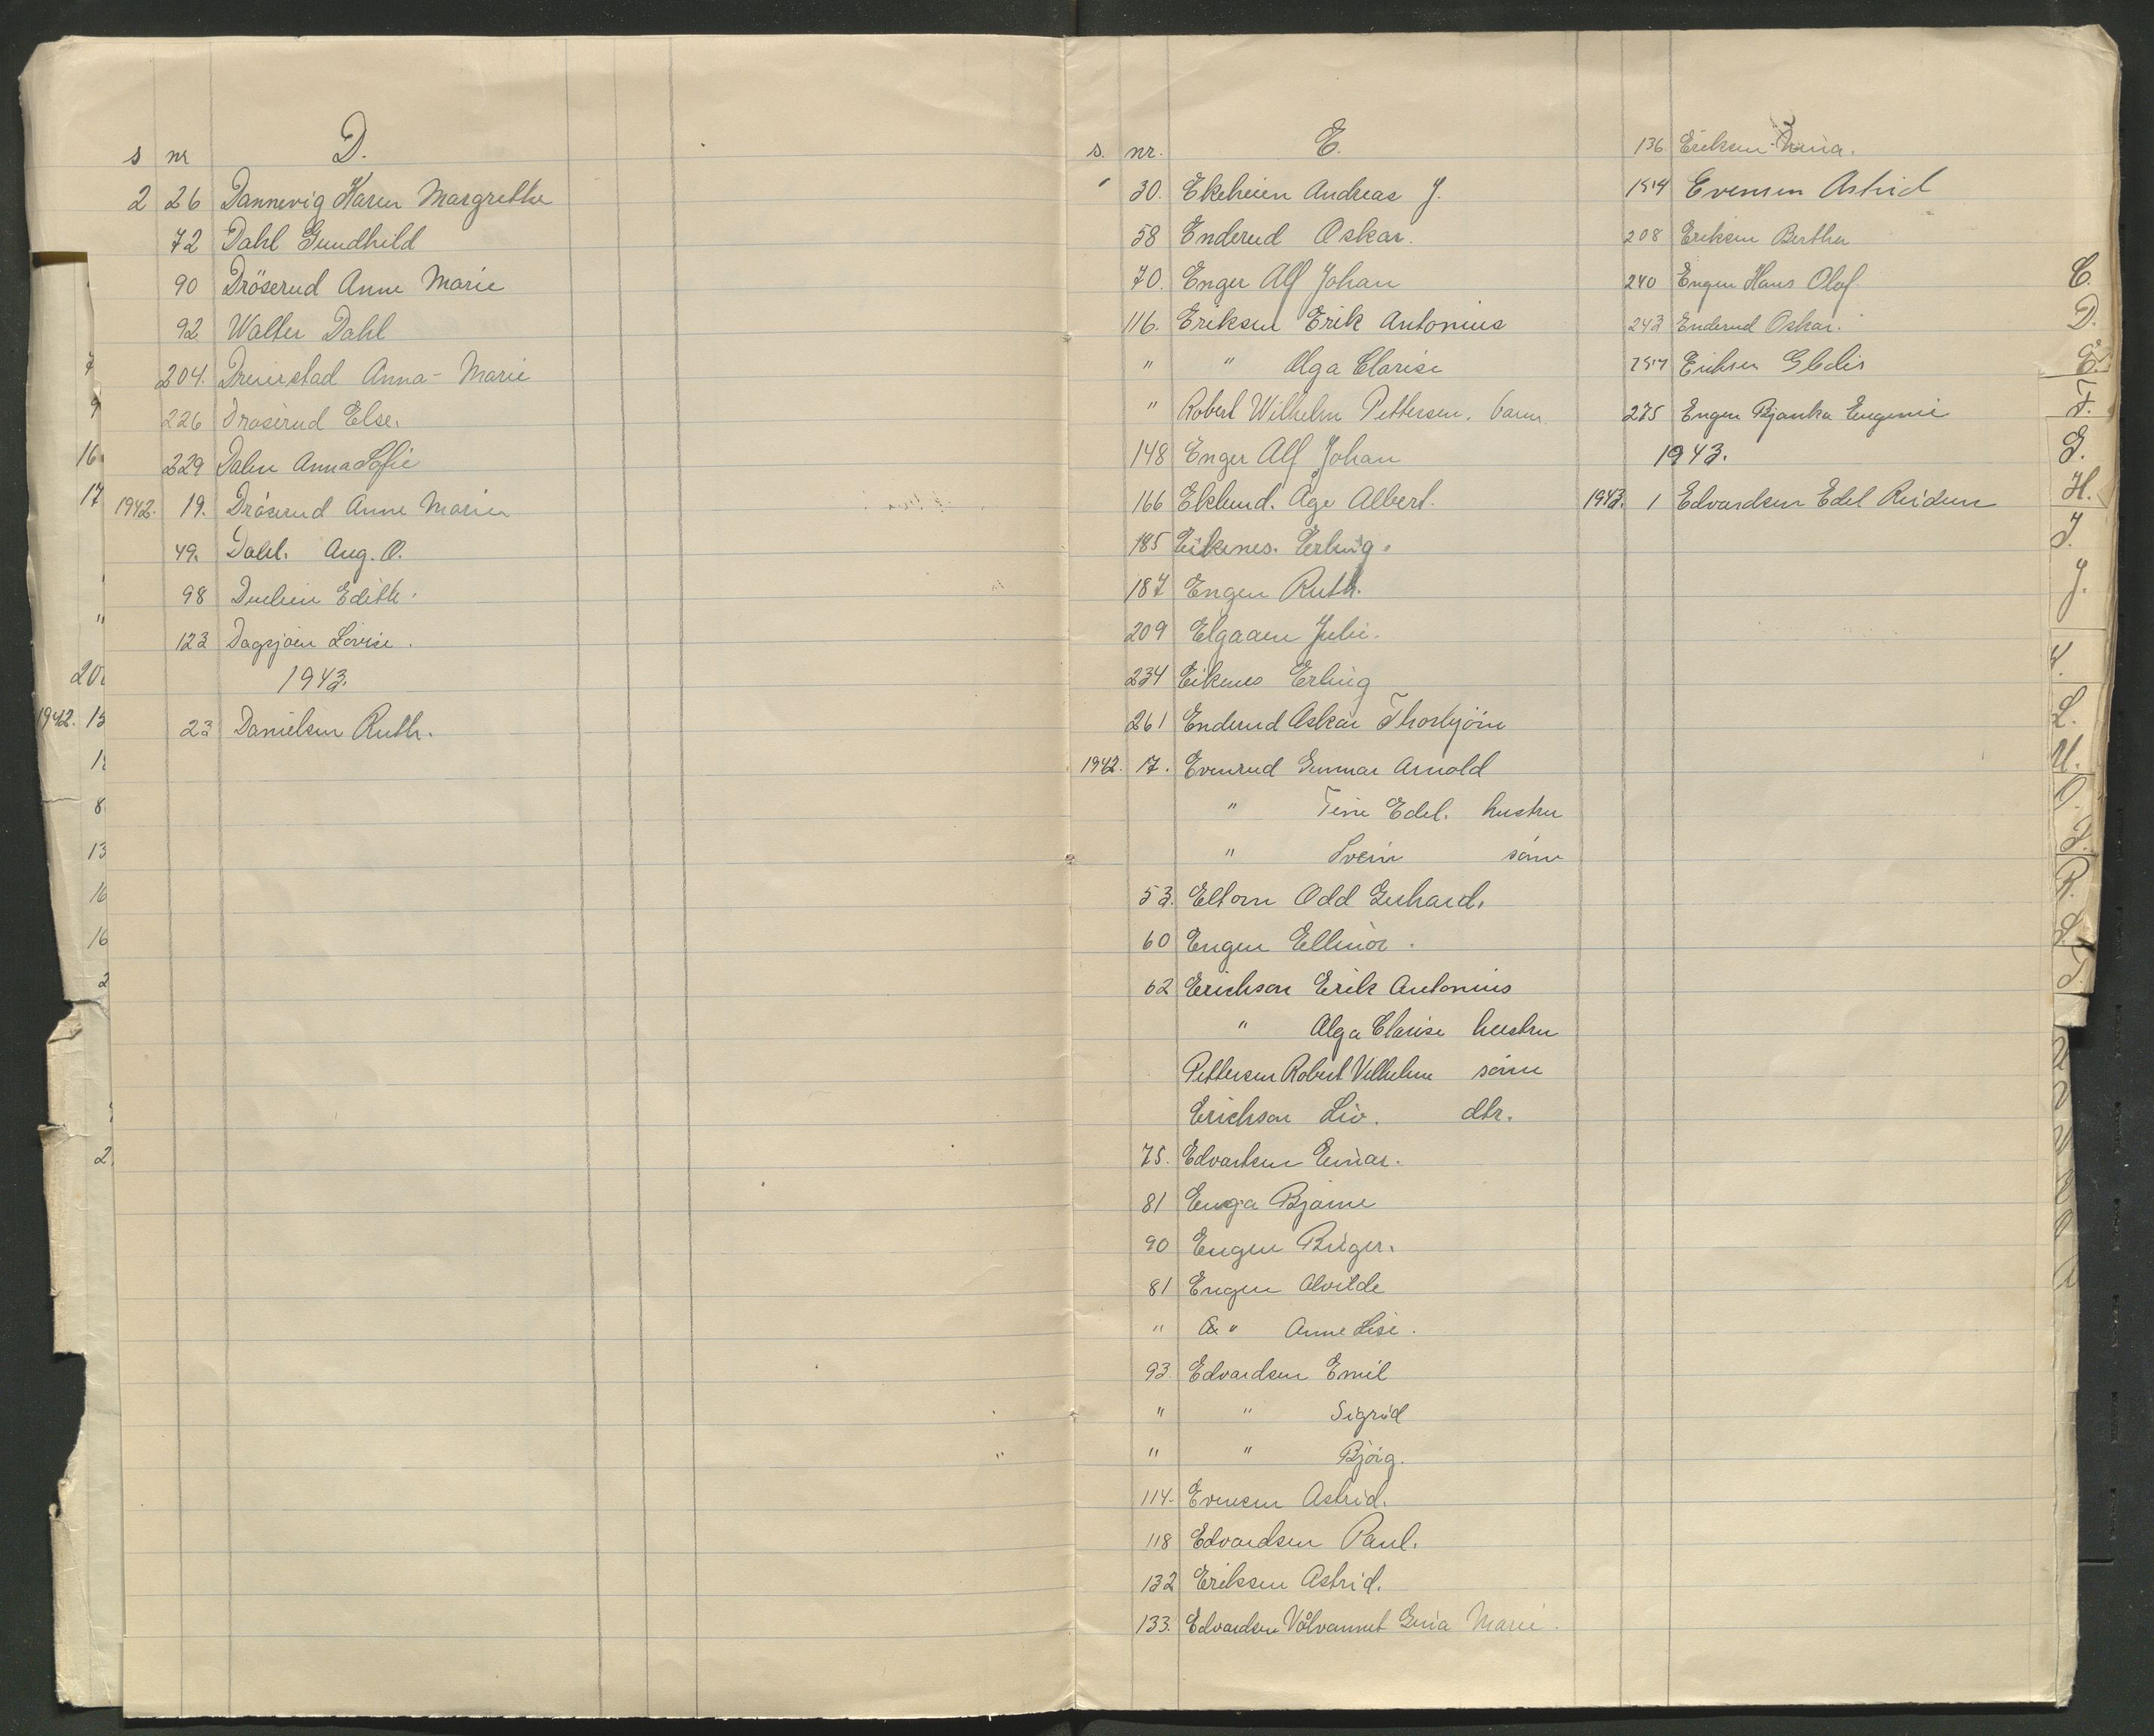 D.
s nr
2 26 Dannevig Karen Margrethe
72 Dahl Gundhild
90 Dröserud Anne Marie
92 Walter Dahl
204. Anna-Marie
226 Dröserud Else.
229 Dalen Anna Sofie
1942. 19. Dröserud Anne Marie
49. Dahl. Aug. O.
98 Edith.
123 Dagsjøen Lovise.
1943.
23 Danielsen Ruth.
E.
s. nr.
30. Ekeheien Andreas J.
58 Enderud Oskar.
70. Enger Alf Johan
116. Eriksen Erik Antonius
" " Olga Clarise
" Robert Wilhelm Pettersen. barn
148 Enger Alf Johan
166 Eklund. Age Albert.
185 Eikenes. Erling.
187 Engen Ruth.
209 Elgaaen Julie.
234 Eikenes Erling
261 Enderud Oskar Thorbjörn
1942. 17. Evenrud Gunnar Arnold
" Tine Edel. hustru
" Svein sönn
53. Eltorn Odd Gerhard.
60 Engen Ellinor.
62 Erichson Erik Antonius
" Olga Clarise hustru
Pettersen Robert Vilhelm sönn
Erichson Liv. dtr.
75. Edvartsen Einar.
81 Enga Bjarne
90 Engen Birger.
81 Engen Alvilde
" " Anne Lise.
93. Edvardsen Emil
" " Sigrid
" " Björg.
114. Evensen Astrid.
118 Edvardsen Paul.
132 Eriksen Astrid.
133. Edvardsen Vålvannet Gina Marie.
136 Eriksen
154 Evensen Astrid
208 Eriksen Berthe
240 Engen Hans Olaf
243 Enderud Oskar.
257 Eriksen Gledis
275 Engen Bjanka Eugenie
1943.
1943. 1 Edvardsen Edel Reidun
C.
D.
E.
F.
G.
H.
I.
J.
L.
R.
S.
T.